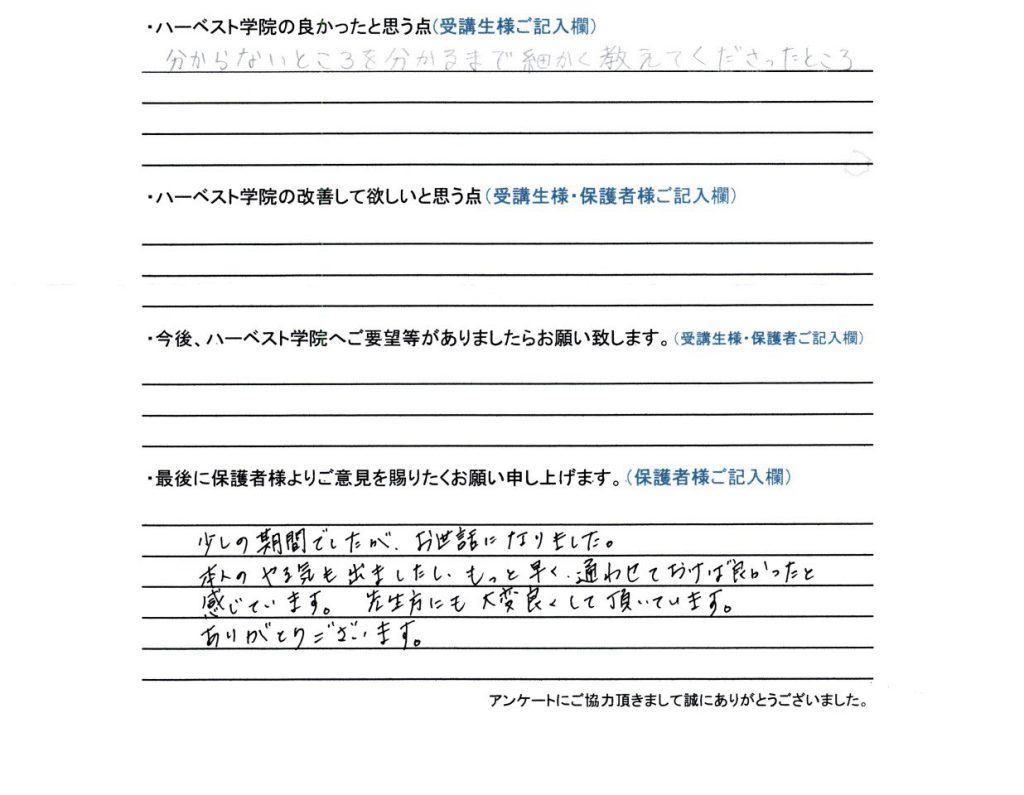 ・ハーベスト学院の良かったと思う点(受講生様ご記入欄)
分からないところを分かるまで細かく教えてくださったところ
・ハーベスト学院の改善して欲しいと思う点(受講生様・保護者様ご記入欄)
・今後、ハーベスト学院へご要望等がありましたらお願い致します。(受講生様・保護者ご記入欄)
・最後に保護者様よりご意見を賜りたくお願い申し上げます。(保護者様ご記入欄)
少しの期間でしたが、お世話になりました。
本人のやる気も出ましたし、もっと早く、通わせておけば良かったと
感じています。 先生方にも大変良くして頂いています。
ありがとうございます。
アンケートにご協力頂きまして誠にありがとうございました。